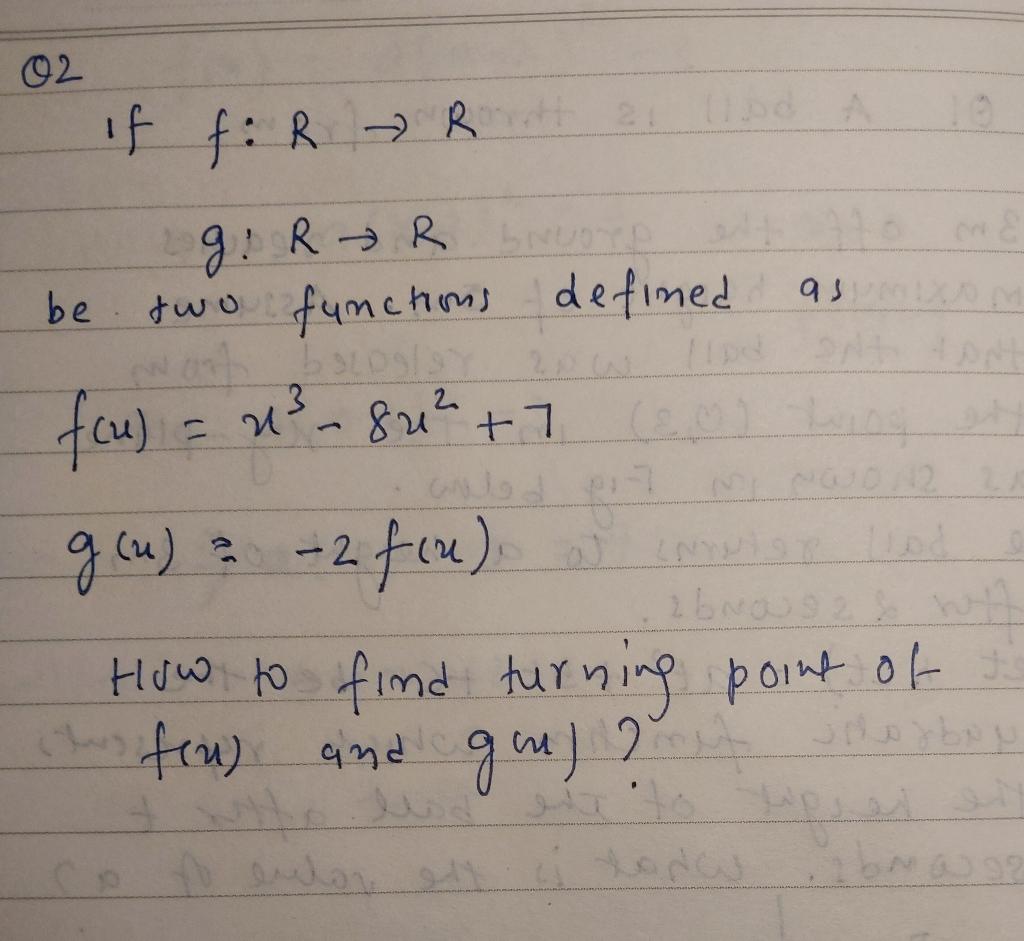 Q2
if f: R → R
g: R → R
be two functions defined as
f(x) = x³ - 8x² + 7
g(x) = -2 f(x)
How to find turning point of
f(x) and g(x) ?